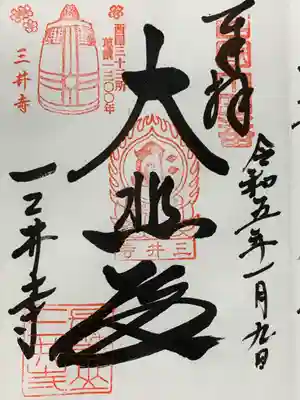 奉拝
令和五年一月九日
大悲殿
三井寺
西国三十三所
草創一三〇〇年
三井寺
三井寺
三井寺